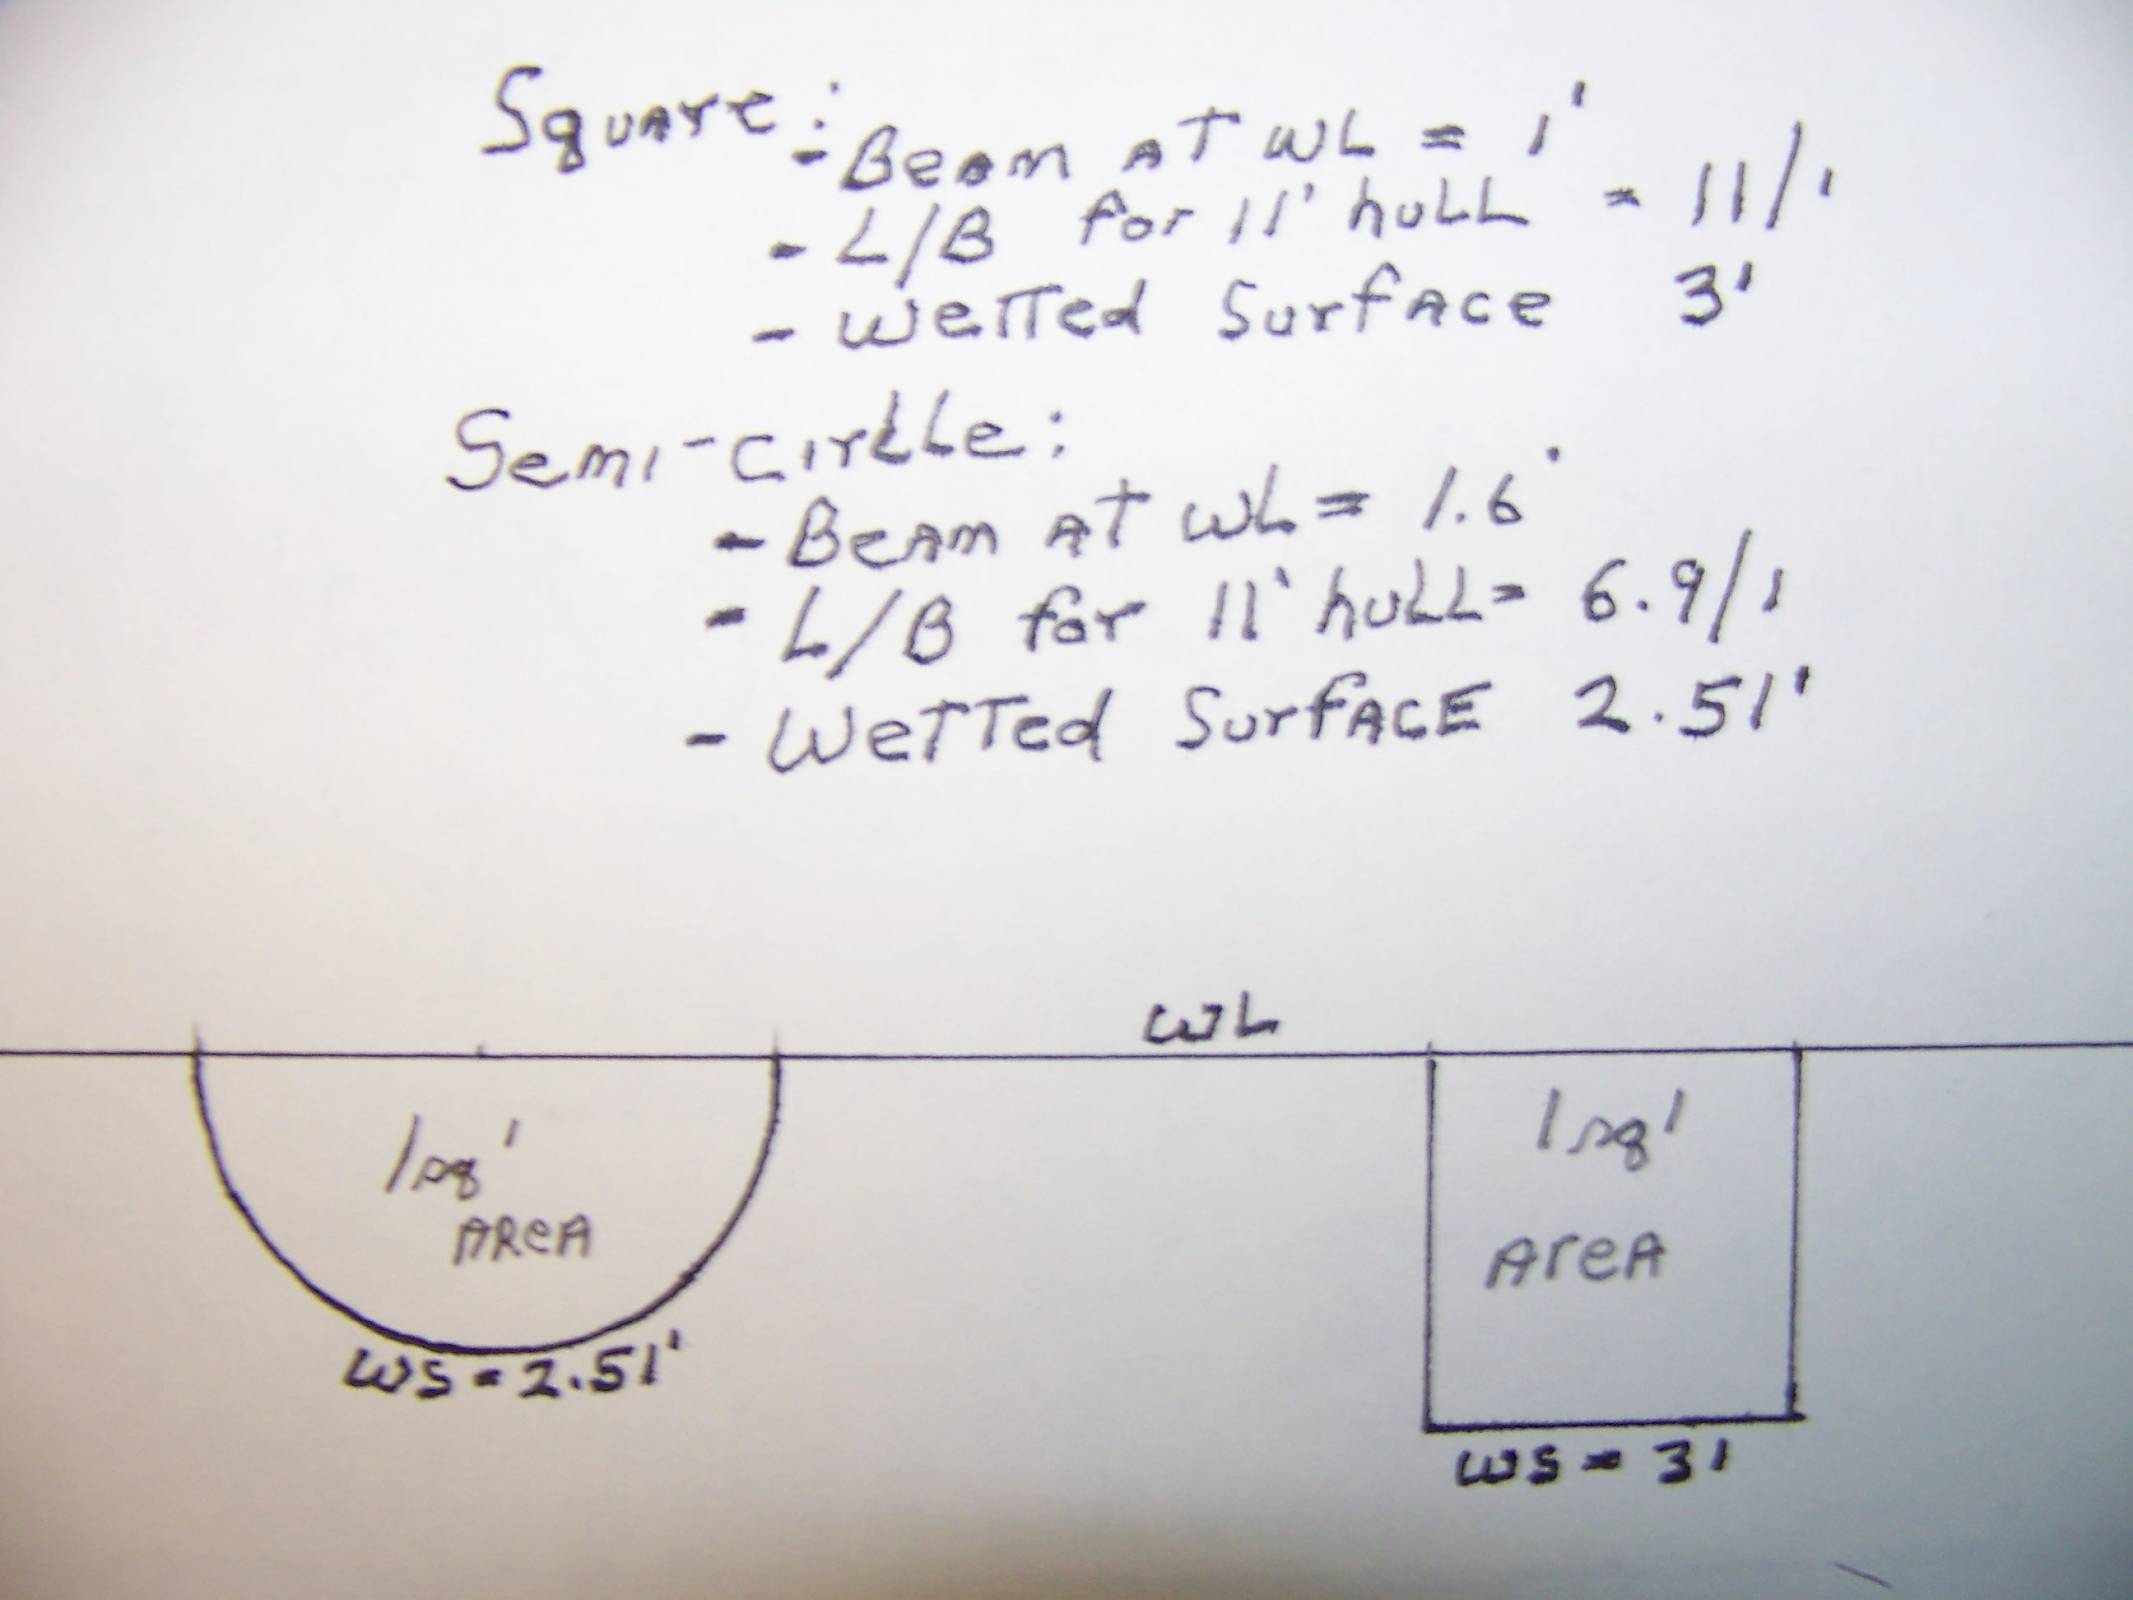 Square:
- Beam AT WL = 1'
- L/B for 11' hull = 11/1
- Wetted Surface 3'
Semi-circle:
- Beam AT WL = 1.6'
- L/B for 11' hull = 6.9/1
- Wetted Surface 2.51'
WL
1 sq'
AREA
WS = 2.51'
1 sq'
Area
WS = 3'